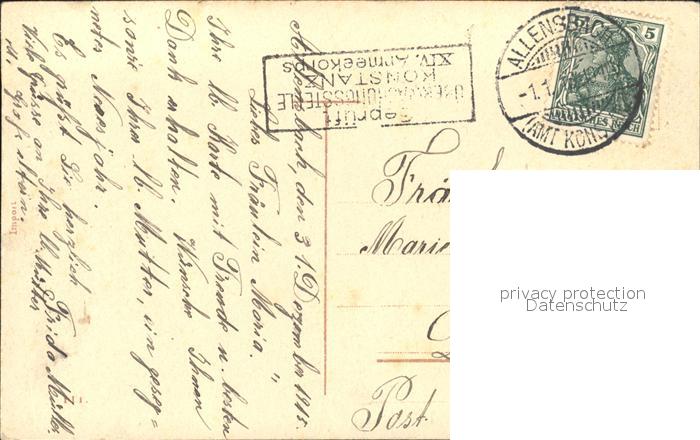 Allensbach, den 31. Dezember 1915.
Liebes Fräulein Maria."
Ihre lb. Karte mit Freude u. besten
Dank erhalten. Wünsche Ihnen
sowie Ihrer lb. Mutter, ein geseg=
netes Neujahr.
Es grüßt Sie herzlich
Frida Müller
Viele Grüsse an Ihre lb. Mutter
u. Großeltern.
Import
Geprüft
ÜBERWACHUNGSSTELLE
KONSTANZ
XIV. Armeekorps
ALLENSBACH
-1.1.
(AMT KONST
5
Marie
Post
privacy protection
Datenschutz